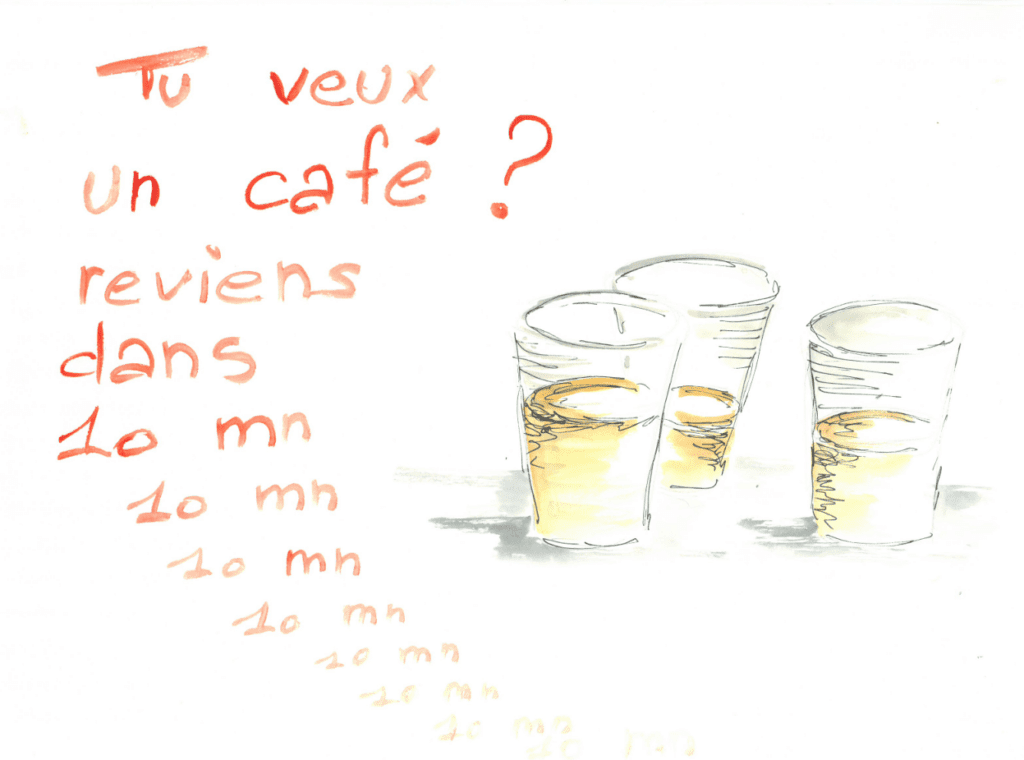 Tu veux
un café ?
reviens
dans
10 mn
10 mn
10 mn
10 mn
10 mn
10 mn
10 mn
10 mn